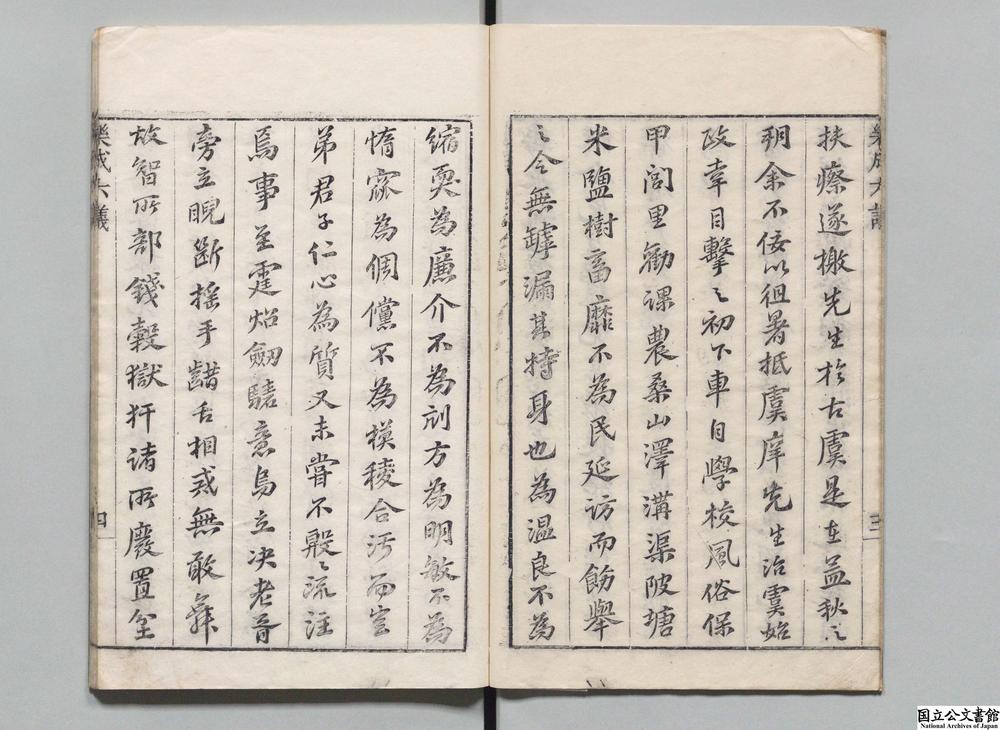 樂成六議
三
扶瘵遂檄先生於古虞是在孟秋之
朔余不佞以徂暑抵虞庠先生治虞始
政幸目擊之初下車自學校風俗保
甲閭里勸課農桑山澤溝渠陂塘
米鹽樹畜靡不為民延訪而飭舉
之今無罅漏其持身也為溫良不為
縮耎為廉介不為刓方為明敏不為
惰窳為倜儻不為模稜合汙而豈
弟君子仁心為質又未嘗不殷殷流注
焉事至霆焰劍驍意烏立决老胥
旁立睨斷搖手齰舌相戒無敢舞
故智所部錢穀獄犴諸所廢置
樂成六議
四
国立公文書館
National Archives of Japan